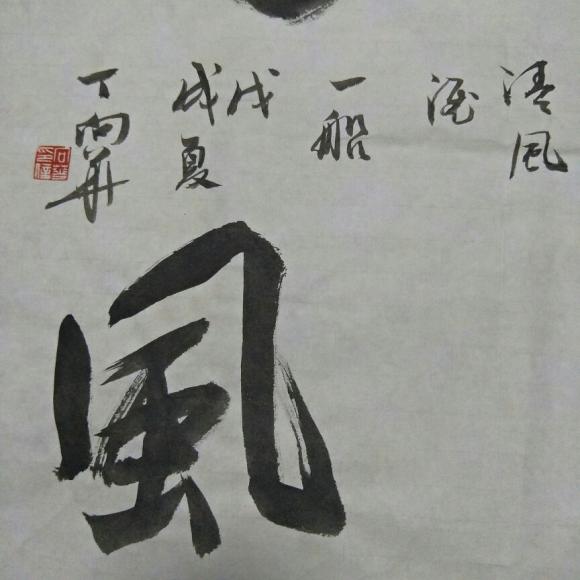 清風
酒
一船
戊
戌夏
丁向
風